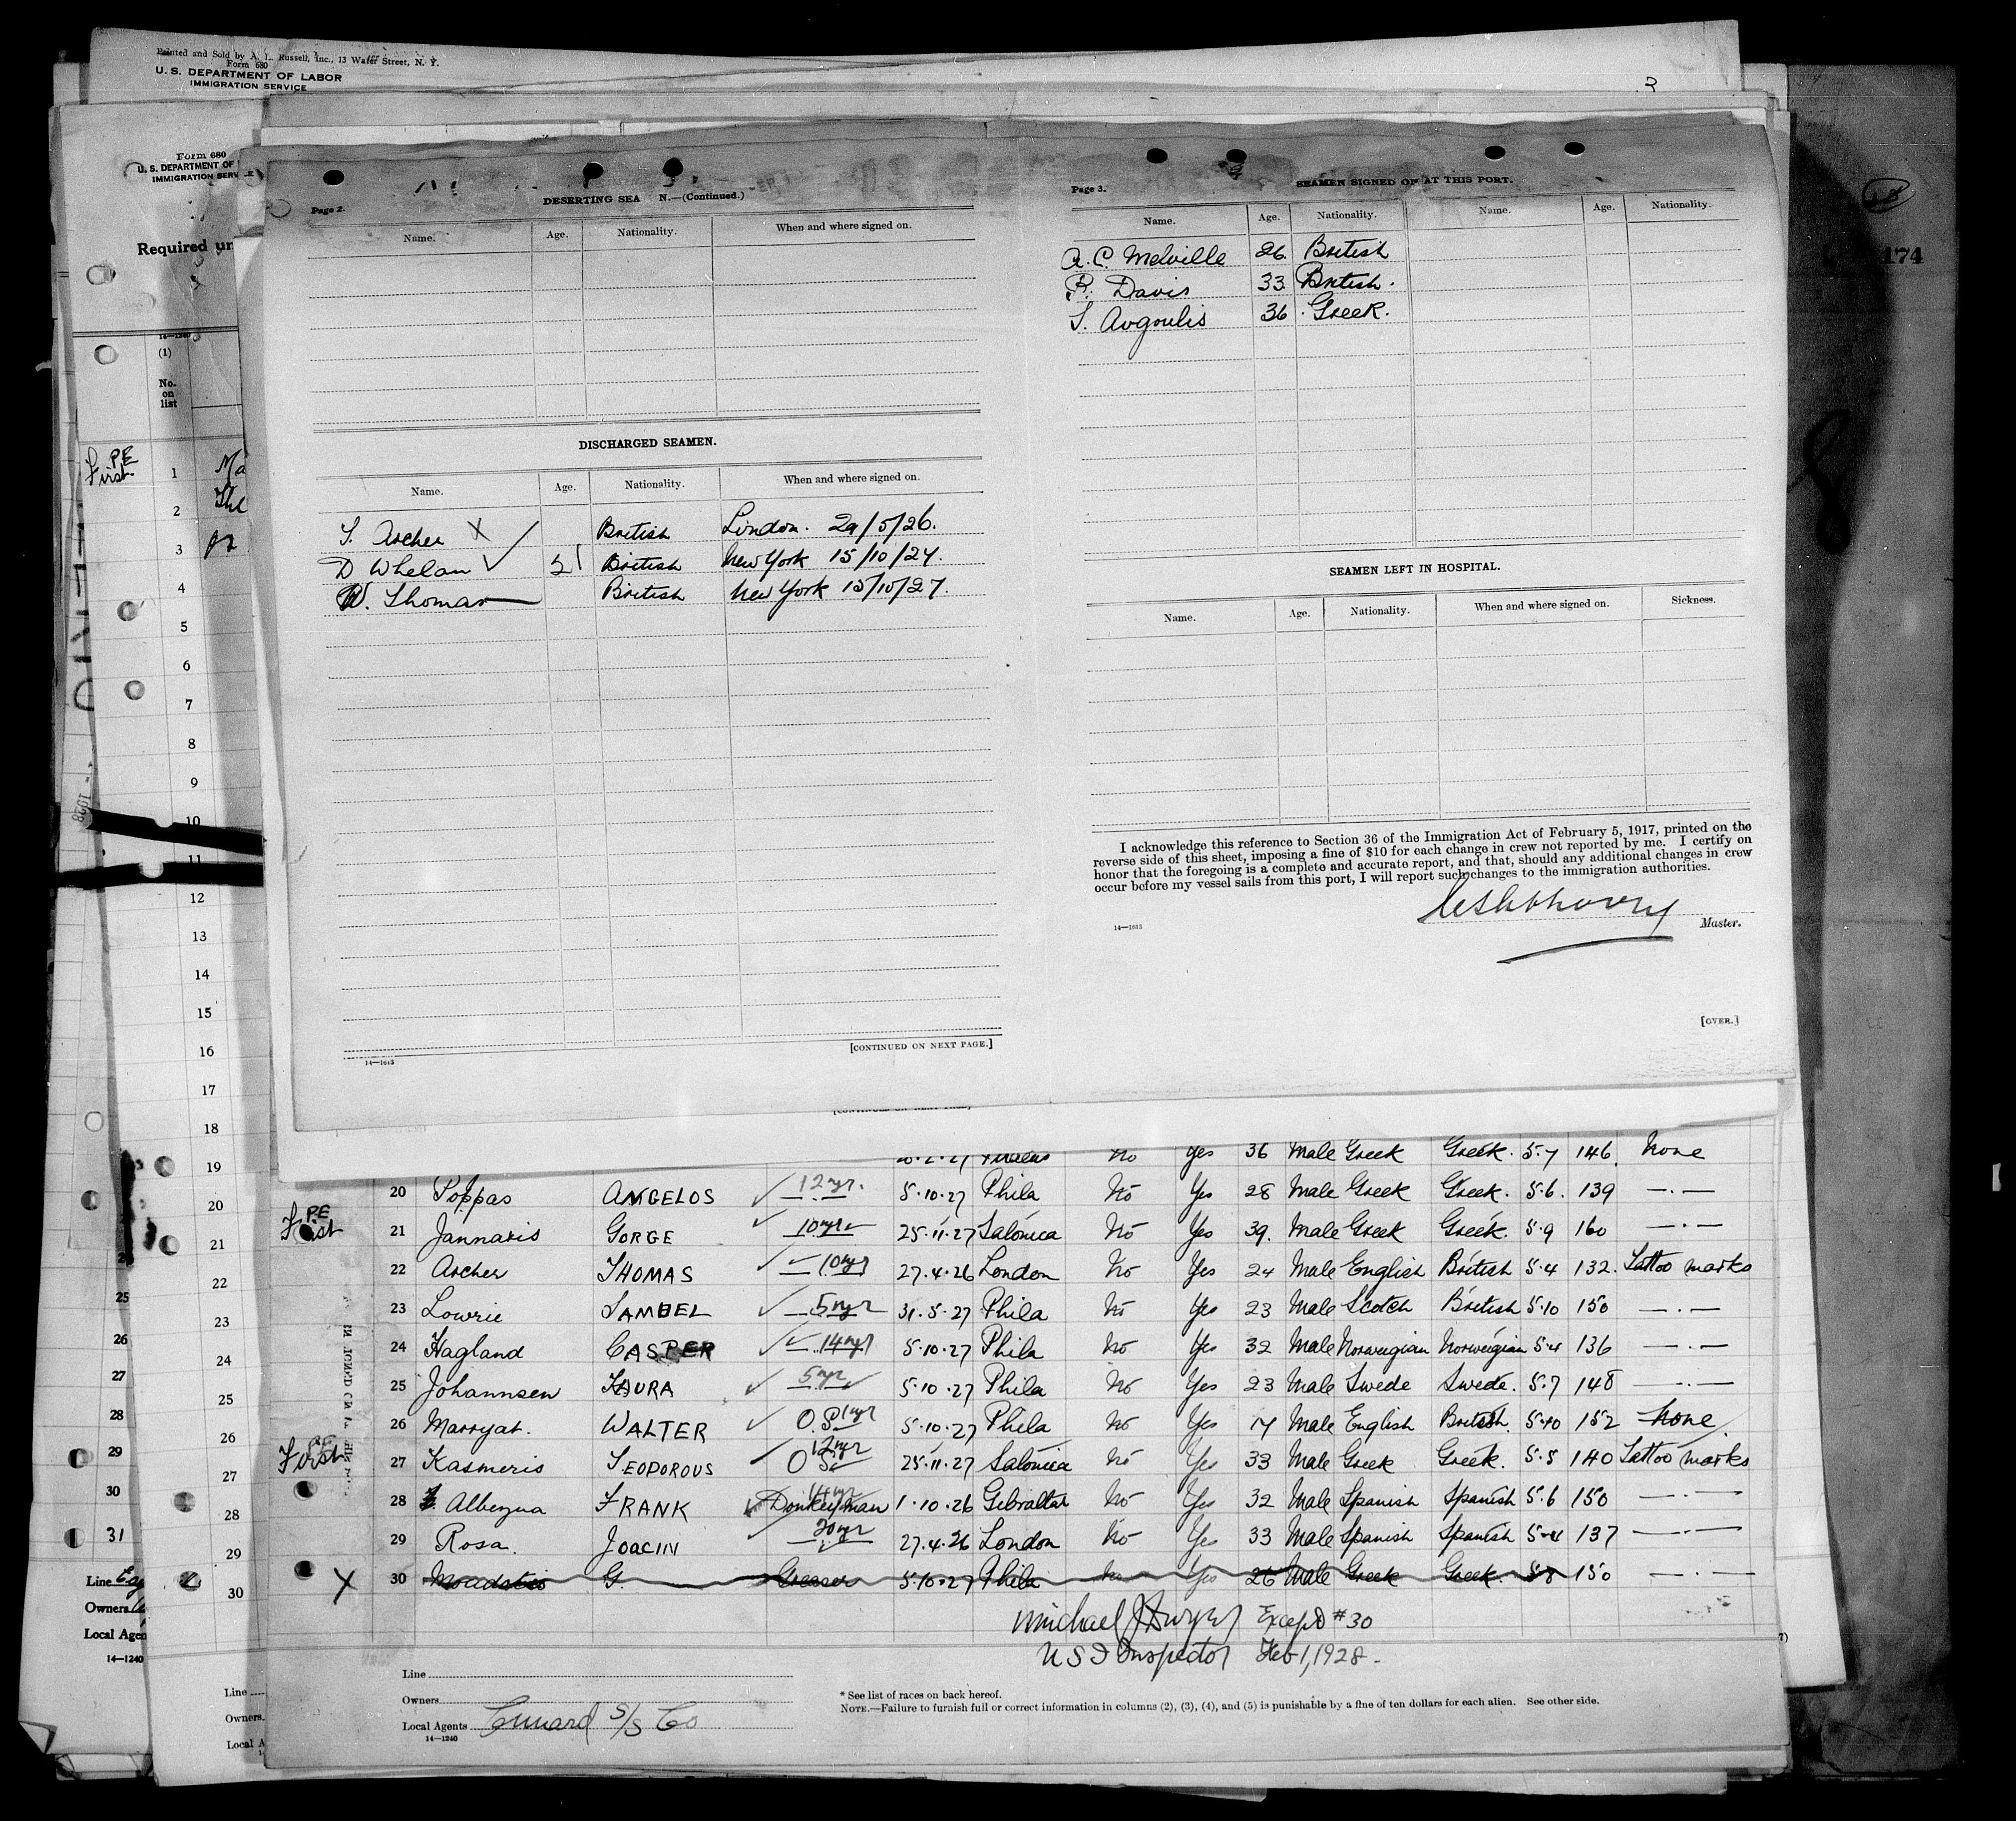 Printed and Sold by A. L. Russell, Inc., 13 Water Street, N. Y.
Form 680
U. S. DEPARTMENT OF LABOR
IMMIGRATION SERVICE
3
Form 680
U. S. DEPARTMENT OF
IMMIGRATION SERV
Required un
14-1240
(1)
No.
on
list
PE
First.
1 Ma
2
3
4
5
6
7
8
9
10
11
12
13
14
15
16
17
18
19
20
21
22
23
24
25
26
27
28
29
30
174
Page 2.
DESERTING SEA N.—(Continued.)
Name. Age. Nationality. When and where signed on.
DISCHARGED SEAMEN.
Name. Age. Nationality. When and where signed on.
T. Archer X British London. 29/5/26.
D Whelan 21 British New York 15/10/27.
W. Thomas British New York 15/10/27.
[CONTINUED ON NEXT PAGE.]
14—1613
Page 3.
SEAMEN SIGNED ON AT THIS PORT.
Name. Age. Nationality. Name. Age. Nationality.
A. C. Melville 26 British
P. Davis 33 British.
S. Avgoulis 36 Greek.
SEAMEN LEFT IN HOSPITAL.
Name. Age. Nationality. When and where signed on. Sickness.
I acknowledge this reference to Section 36 of the Immigration Act of February 5, 1917, printed on the
reverse side of this sheet, imposing a fine of $10 for each change in crew not reported by me. I certify on
honor that the foregoing is a complete and accurate report, and that, should any additional changes in crew
occur before my vessel sails from this port, I will report such changes to the immigration authorities.
Master.
14—1613
[OVER.]
No Yes 36 Male Greek Greek. 5·7 146 None
20 Poppas ANGELOS 12 yr. 5·10·27 Phila No Yes 28 Male Greek Greek. 5·6. 139 —·—
PE
First 21 Jannakis GORGE 10 yr 25·11·27 Salonica No Yes 39. Male Greek Greek. 5·9 160 —·—
22 Archer THOMAS 10 yr 27·4·26 London No Yes 24 Male English British 5·4 132. Tattoo marks
23 Lowrie SAMUEL 5 yr 31·5·27 Phila No Yes 23 Male Scotch British 5·10 150 —·—
24 Hagland CASPER 14 yr 5·10·27 Phila No Yes 32 Male Norweigian Norweigian 5·4 136 —·—
25 Johannsen 5 yr 5·10·27 Phila No Yes 23 Male Swede Swede. 5·7 148 —·—
26 Marryat. WALTER O.S. 1 yr 5·10·27 Phila No Yes 17 Male English British. 5·10 152 None
PE
First 27 Kasmeris TEOPOROUS O S 12 yr 25·11·27 Salonica No Yes 33 Male Greek Greek. 5·5 140 Tattoo marks
28 Albegua FRANK Donkeyman 14 yr 1·10·26 Gibraltar No Yes 32 Male Spanish Spanish 5·6 150 —·—
29 Rosa. JOACIN 20 yr 27·4·26 London No Yes 33 Male Spanish Spanish 5·4 137 —·—
X 30 G. Greaser 5·10·27 Phila No Yes 26 Male Greek Greek. 5·8 150 —·—
Michael J Dwyer Except #30
U S I Inspector Feb 1, 1928.
Line
Owners
Local Agents Cunard S/S Co
14—1240
* See list of races on back hereof.
NOTE.—Failure to furnish full or correct information in columns (2), (3), (4), and (5) is punishable by a fine of ten dollars for each alien. See other side.
25
26
27
28
29
30
31
Line
Owners
Local Agen
14—1240
Line
Owners.
Local A